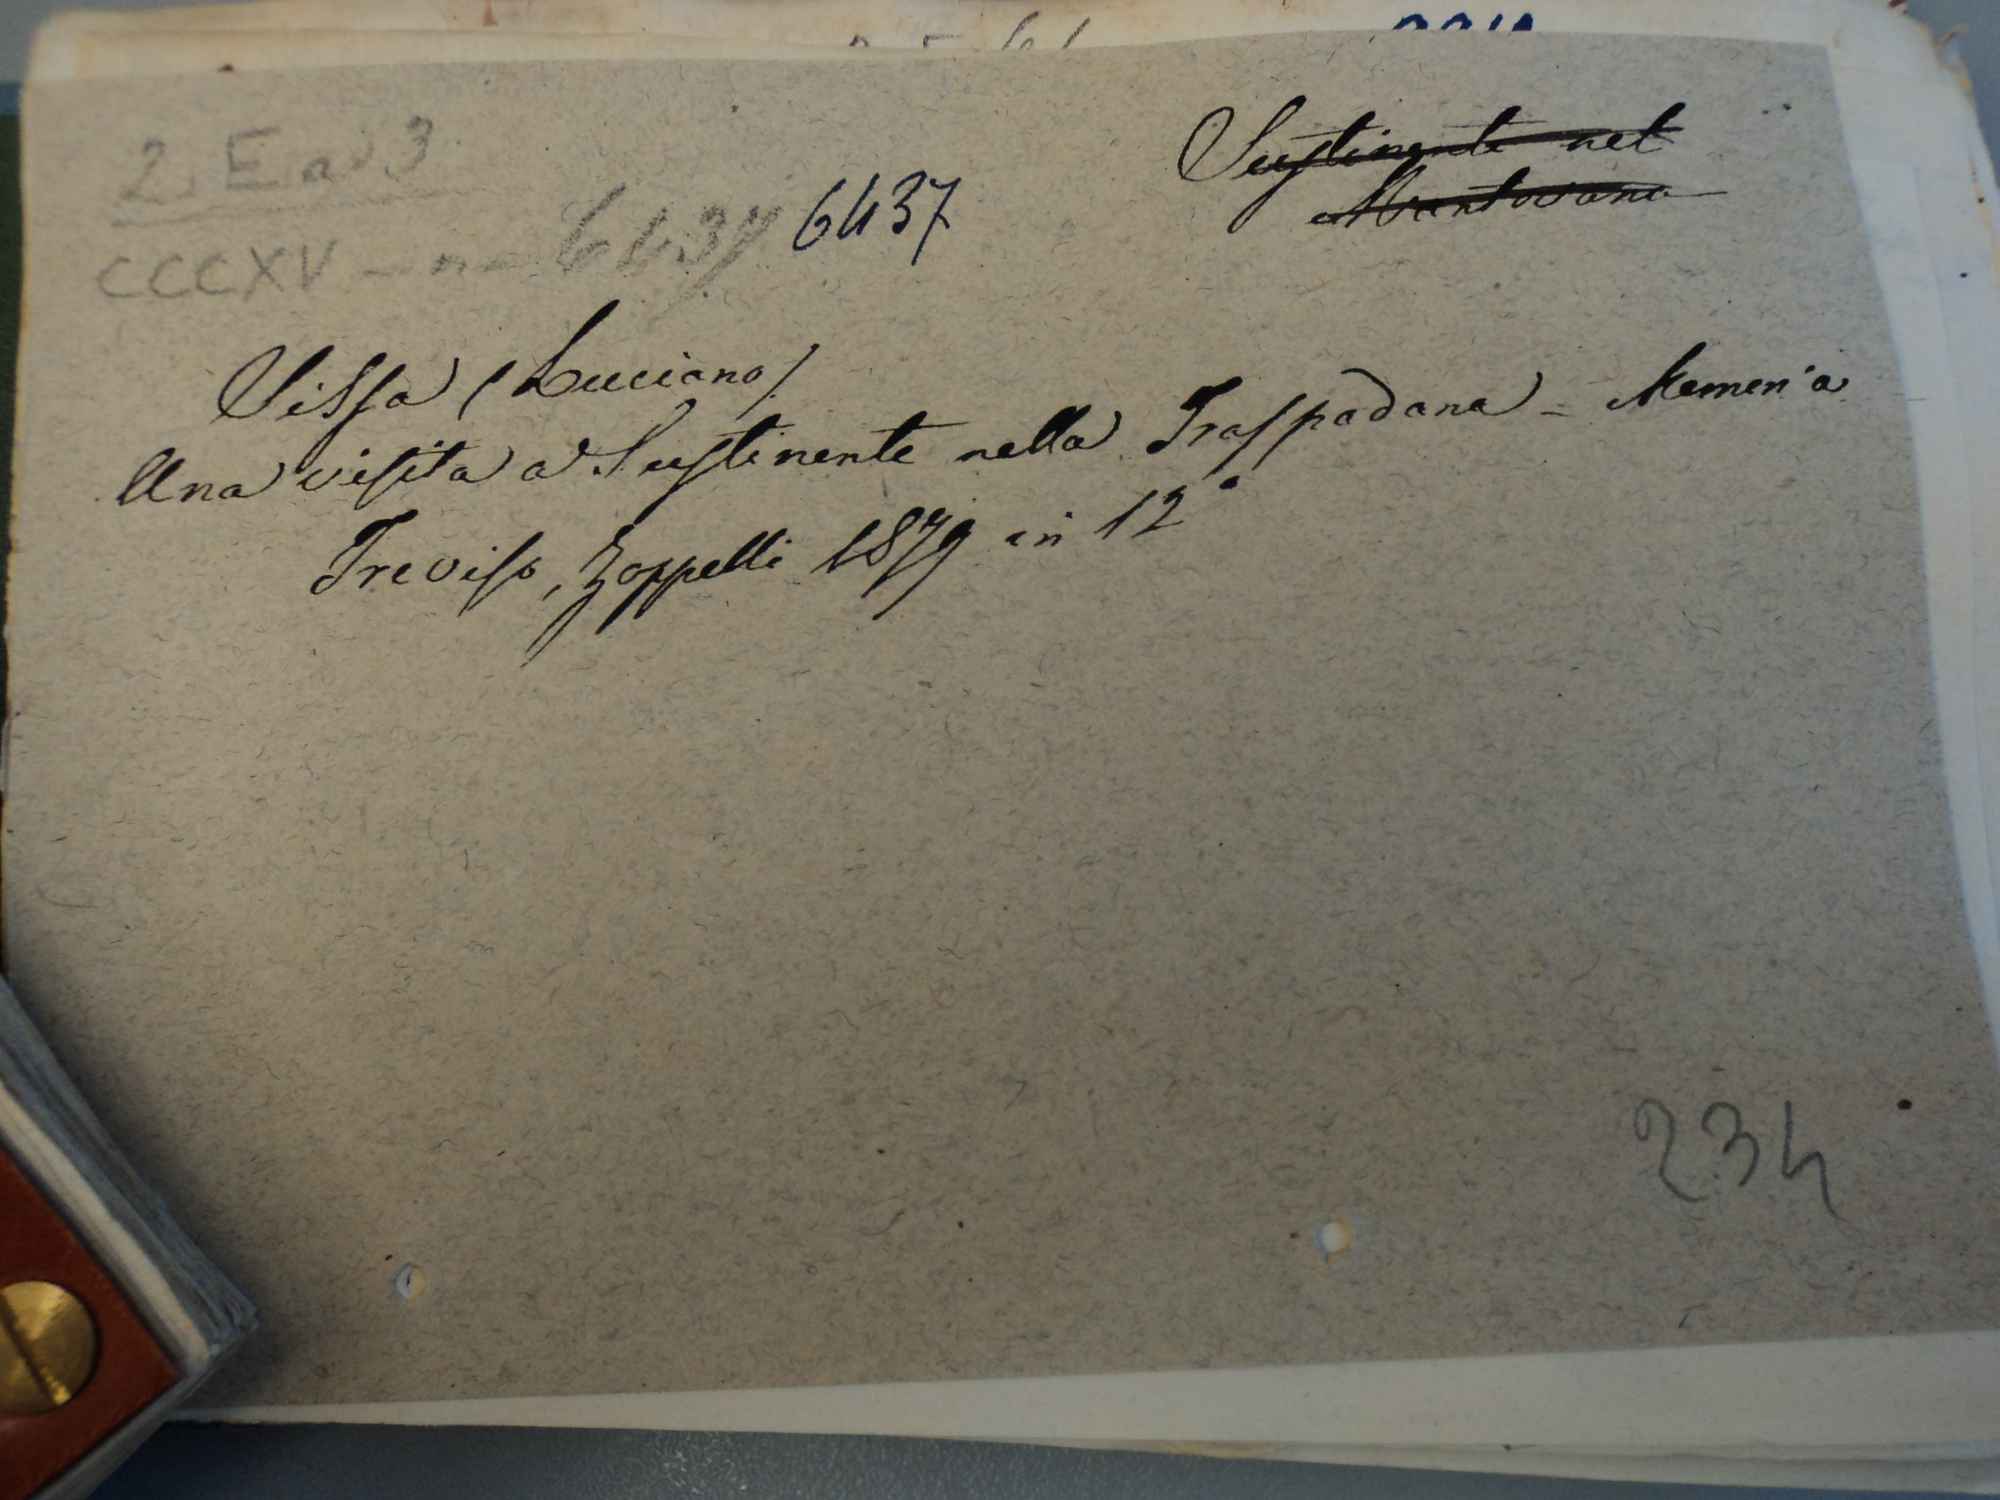 2. E. a. 3
Sustinente nel
Mantovano
CCCXV - n - 6437 6437
Sissa (Luciano)
Una visita a Sustinente nella Traspadana - Memoria
Treviso, Zoppelli 1879 in 12°
234